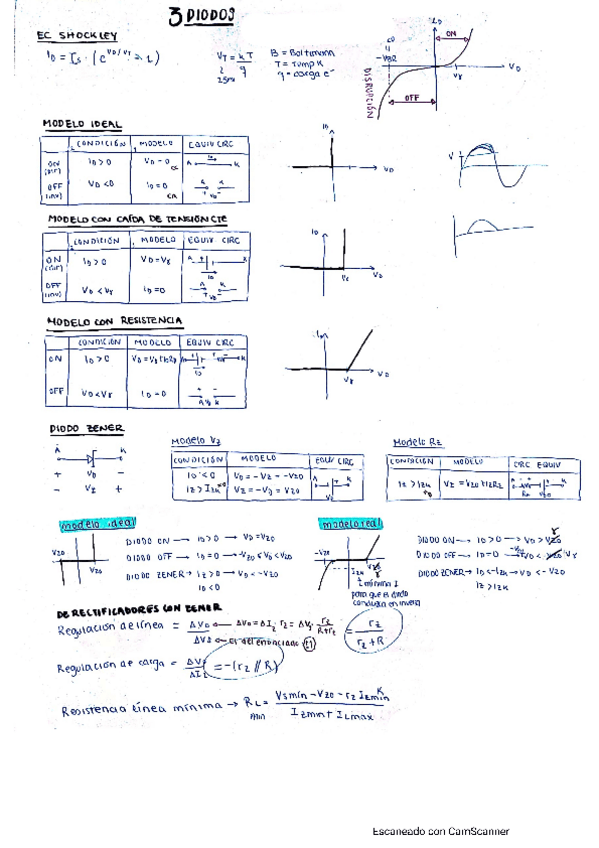 3 DIODOS
EC SHOCKLEY
iD = Is · (e^VD/VT - 1)
VT = kT/q
B = Boltzmann
T = Temp K
q = carga e-
ON
OFF
DISRUPCIÓN
VD
Vγ
MODELO IDEAL
CONDICIÓN MODELO EQUIV CIRC
ON iD > 0 VD = 0 A K
OFF VD < 0 iD = 0 A K
MODELO CON CAÍDA DE TENSIÓN CTE
CONDICIÓN MODELO EQUIV CIRC
ON iD > 0 VD = Vγ A K
OFF VD < Vγ iD = 0 A K
MODELO CON RESISTENCIA
CONDICIÓN MODELO EQUIV CIRC
ON iD > 0
OFF VD < Vγ iD = 0
DIODO ZENER
A K
+ VD -
- VZ +
Modelo Vz
CONDICIÓN MODELO EQUIV CIRC
iD < 0 VD = -VZ = -VZ0
VZ = -VD = VZ0
Modelo Rz
CONDICIÓN MODELO CIRC EQUIV
IZ > IZK VZ = VZ0 + IZRZ
modelo ideal
DIODO ON → iD > 0 → VD = VZ0
DIODO OFF → iD = 0 → -VZ0 < VD < VZ0
DIODO ZENER → IZ > 0 → VD < -VZ0
iD < 0
modelo real
-VZ0
IZK
mínima I
para que el diodo
conduzca en inversa
DIODO ON → iD > 0 → VD >
DIODO OFF → iD = 0
DIODO ZENER → VD < -VZ0
IZ > IZK
DE RECTIFICADORES CON ZENER
Regulación de línea =
el del enunciado
= rz / (rz + R)
Regulación de carga = = -(rz // R)
Resistencia línea mínima → RL min = (Vsmín - VZ0 - rz IZmin) / (IZmin + ILmax)
Escaneado con CamScanner